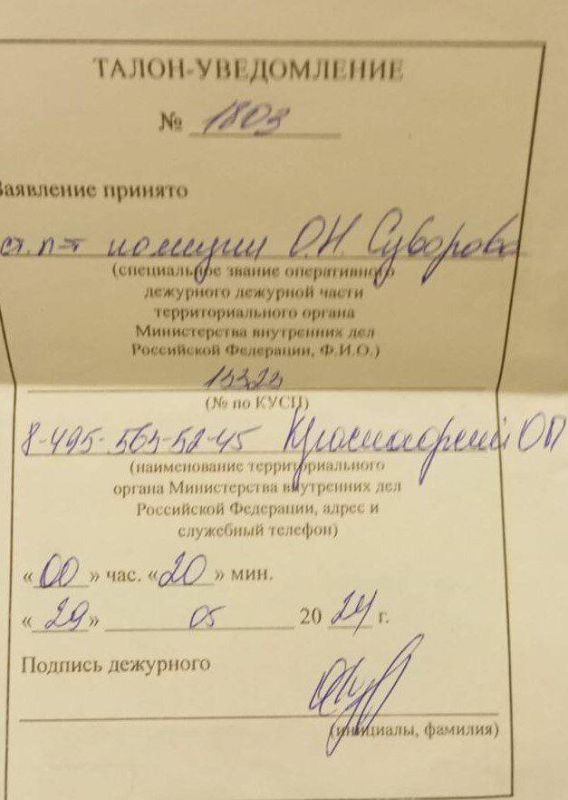 ТАЛОН-УВЕДОМЛЕНИЕ
№ 1803
Заявление принято
ст. л-т полиции О.Н. Суворова
(специальное звание оперативного
дежурного дежурной части
территориального органа
Министерства внутренних дел
Российской Федерации, Ф.И.О.)
(№ по КУСП)
8-495-563-52-45 Красногорский ОП
(наименование территориального
органа Министерства внутренних дел
Российской Федерации, адрес и
служебный телефон)
«00» час. «20» мин.
«29» 05 2024 г.
Подпись дежурного
(инициалы, фамилия)